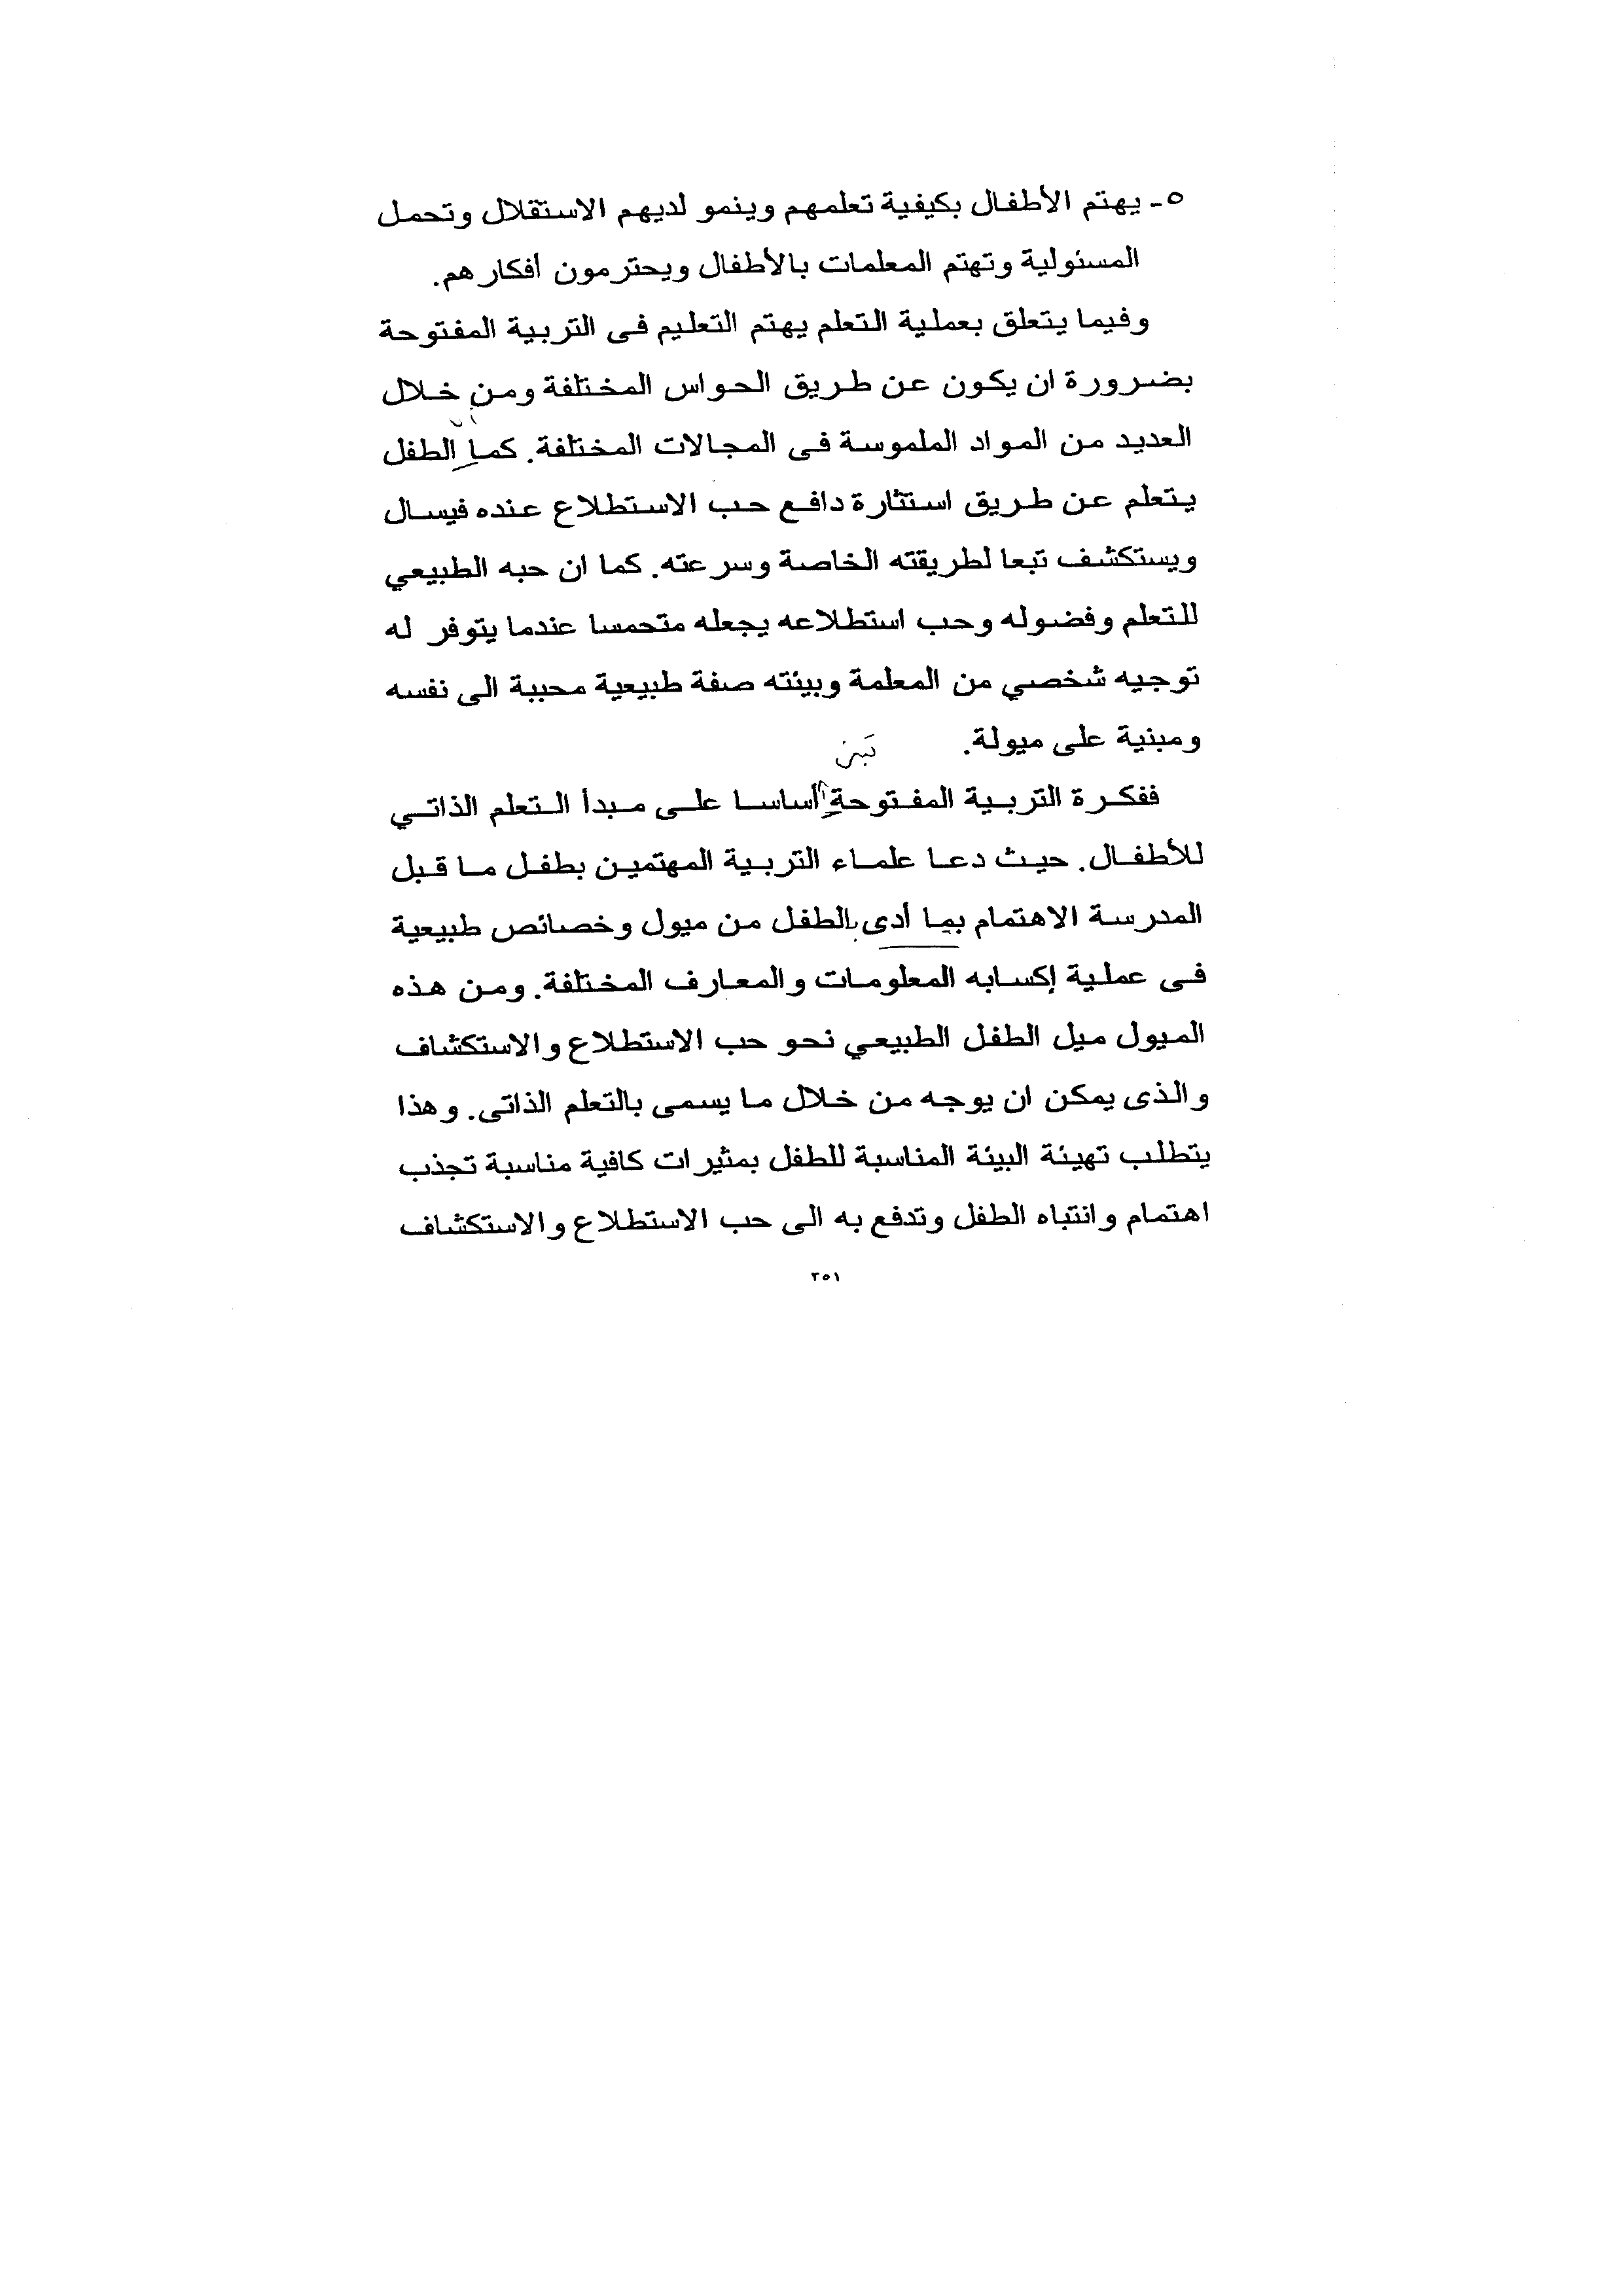 ٥- يهتم الأطفال بكيفية تعلمهم وينمو لديهم الاستقلال وتحمل
المسئولية وتهتم المعلمات بالأطفال ويحترمون أفكارهم.
وفيما يتعلق بعملية التعلم يهتم التعليم فى التربية المفتوحة
بضرورة ان يكون عن طريق الحواس المختلفة ومن خلال
العديد من المواد الملموسة فى المجالات المختلفة. كما الطفل
يتعلم عن طريق استثارة دافع حب الاستطلاع عنده فيسال
ويستكشف تبعا لطريقته الخاصة وسرعته. كما ان حبه الطبيعي
للتعلم وفضوله وحب استطلاعه يجعله متحمسا عندما يتوفر له
توجيه شخصي من المعلمة وبيئته صفة طبيعية محببة الى نفسه
ومبنية على ميولة.
ففكرة التربية المفتوحة أساسا على مبدأ التعلم الذاتي
للأطفال. حيث دعا علماء التربية المهتمين بطفل ما قبل
المدرسة الاهتمام بما أدى بالطفل من ميول وخصائص طبيعية
فى عملية إكسابه المعلومات والمعارف المختلفة. ومن هذه
الميول ميل الطفل الطبيعي نحو حب الاستطلاع والاستكشاف
والذى يمكن ان يوجه من خلال ما يسمى بالتعلم الذاتى. وهذا
يتطلب تهيئة البيئة المناسبة للطفل بمثيرات كافية مناسبة تجذب
اهتمام وانتباه الطفل وتدفع به الى حب الاستطلاع والاستكشاف
٢٥١